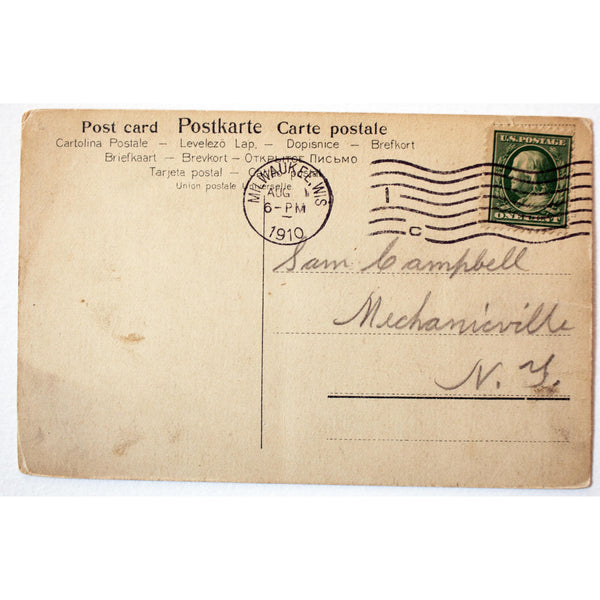 Post card Postkarte Carte postale
Cartolina Postale – Levelezö Lap. – Dopisnice – Brefkort
Briefkaart – Brevkort – Открытое Письмо
Tarjeta postal –
Union postale
U.S. POSTAGE
ONE CENT
MILWAUKEE, WIS
AUG
6-PM
1910
1
C
Sam Campbell
Mechanicville
N. Y.